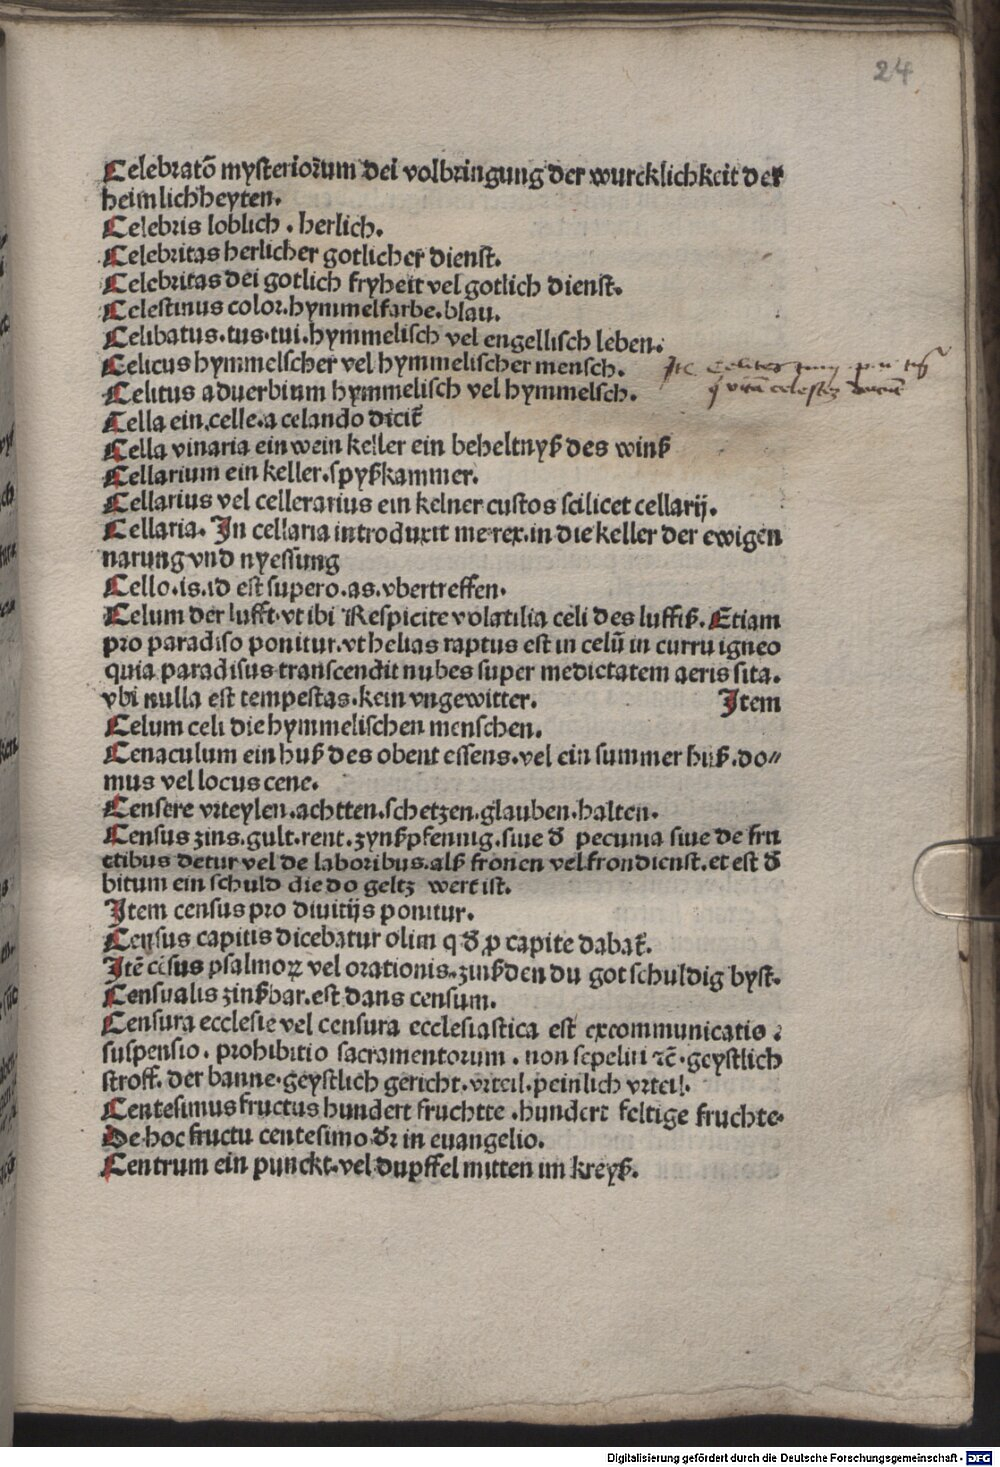 24
Celebratõ mysteriorum dei volbringung der wurcklichkeit der
heimlichheyten.
Celebris loblich . herlich.
Celebritas herlicher gotlicher dienst.
Celebritas dei gotlich fryheit vel gotlich dienst.
Celestinus color.hymmelfarbe.blau.
Celibatus.tus.tui.hymmelisch vel engellisch leben.
Celicus hymmelscher vel hymmelischer mensch.
Celitus aduerbium hymmelisch vel hymmelsch.
Cella ein.celle.a celando dicit̃
Cella vinaria ein wein keller ein beheltnyß des winß
Cellarium ein keller.spyßkammer.
Cellarius vel cellerarius ein kelner custos scilicet cellarij.
Cellaria. In cellaria introduxit me rex.in die keller der ewigen
narung vnd nyessung
Cello.is.id est supero.as.vbertreffen.
Celum der lufft.vt ibi Respicite volatilia celi des lufftß. Etiam
pro paradiso ponitur.vt helias raptus est in celũ in curru igneo
quia paradisus transcendit nubes super medietatem aeris sita.
vbi nulla est tempestas.kein vngewitter. Item
Celum celi die hymmelischen menschen.
Cenaculum ein huß des obent essens.vel ein summer huß.do⸗
mus vel locus cene.
Censere vrteylen.achtten.schetzen.glauben.halten.
Census zins.gult.rent.zynßpfennig.siue đ pecunia siue de fru
ctibus detur vel de laboribus.alß fronen vel frondienst.et est đ
bitum ein schuld die do geltz wert ist.
Item census pro diuitijs ponitur.
Census capitis dicebatur olim q đ ꝓ capite dabat̃.
Itẽ cẽsus psalmoꝝ vel orationis.zinß den du got schuldig byst.
Censualis zinßbar.est dans censum.
Censura ecclesie vel censura ecclesiastica est excommunicatio .
suspensio . prohibitio sacramentorum . non sepeliri ⁊c̃.geystlich
stroff. der banne.geystlich gericht.vrteil.peinlich vrteil.
Centesimus fructus hundert fruchtte .hundert feltige fruchte.
De hoc fructu centesimo đr in euangelio.
Centrum ein punckt.vel dupffel mitten im kreyß.
Digitalisierung gefördert durch die Deutsche Forschungsgemeinschaft - DFG